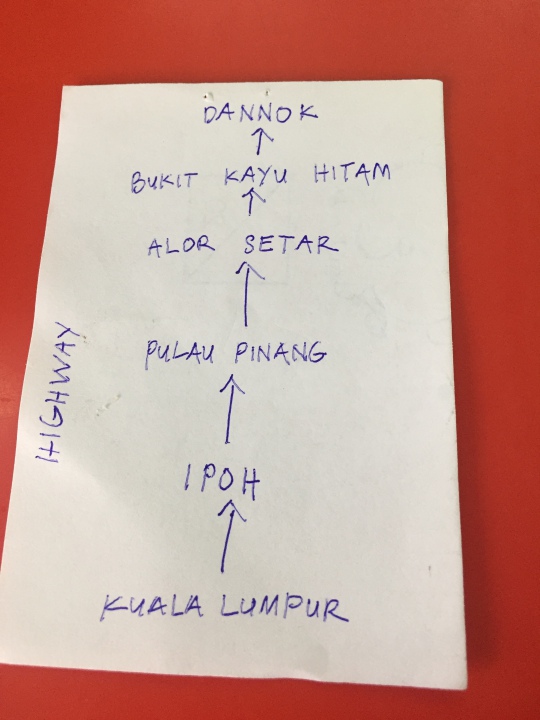 DANNOK
↑
BUKIT KAYU HITAM
↑
ALOR SETAR
↑
PULAU PINANG
↑
IPOH
↑
KUALA LUMPUR
HIGHWAY